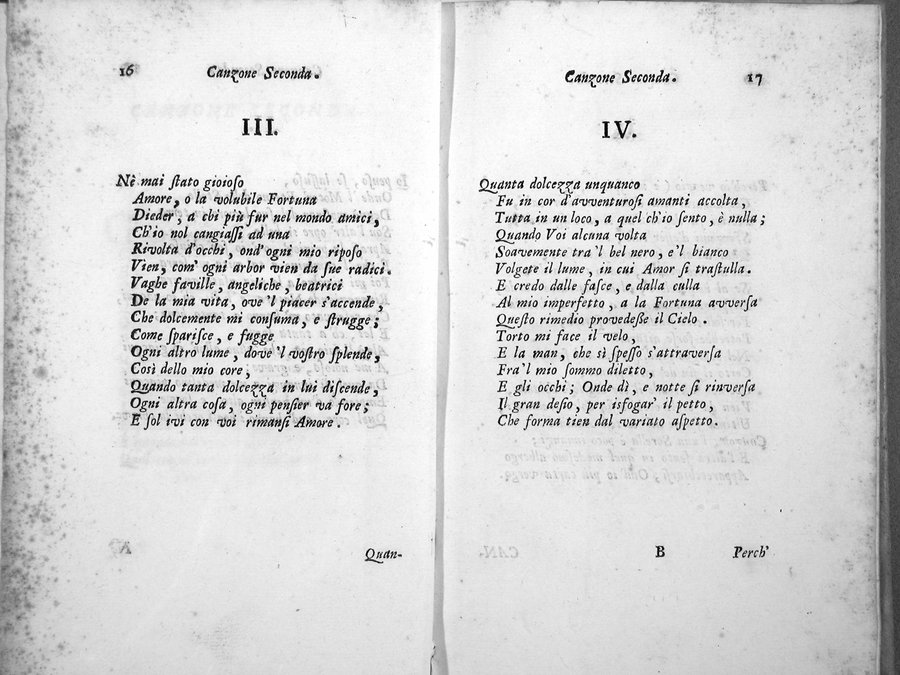 16 Canzone Seconda.
III.
Nè mai ſtato gioioſo
Amore, o la volubile Fortuna
Dieder, a chi più fur nel mondo amici,
Ch'io nol cangiaſſi ad una
Rivolta d'occhi, ond'ogni mio ripoſo
Vien, com' ogni arbor vien da ſue radici.
Vaghe faville, angeliche, beatrici
De la mia vita, ove 'l piacer s'accende,
Che dolcemente mi conſuma, e ſtrugge;
Come ſpariſce, e fugge
Ogni altro lume, dove 'l voſtro ſplende,
Così dello mio core,
Quando tanta dolcezza in lui diſcende,
Ogni altra coſa, ogni penſier va fore;
E ſol ivi con voi rimanſi Amore.
Quan-
Canzone Seconda. 17
IV.
Quanta dolcezza unquanco
Fu in cor d'avventuroſi amanti accolta,
Tutta in un loco, a quel ch'io ſento, è nulla;
Quando Voi alcuna volta
Soavemente tra'l bel nero, e'l bianco
Volgete il lume, in cui Amor ſi traſtulla.
E credo dalle faſce, e dalla culla
Al mio imperfetto, a la Fortuna avverſa
Queſto rimedio provedeſſe il Cielo.
Torto mi face il velo,
E la man, che sì ſpeſſo s'attraverſa
Fra'l mio ſommo diletto,
E gli occhi; Onde dì, e notte ſi rinverſa
Il gran deſio, per isfogar' il petto,
Che forma tien dal variato aſpetto.
B Perch'